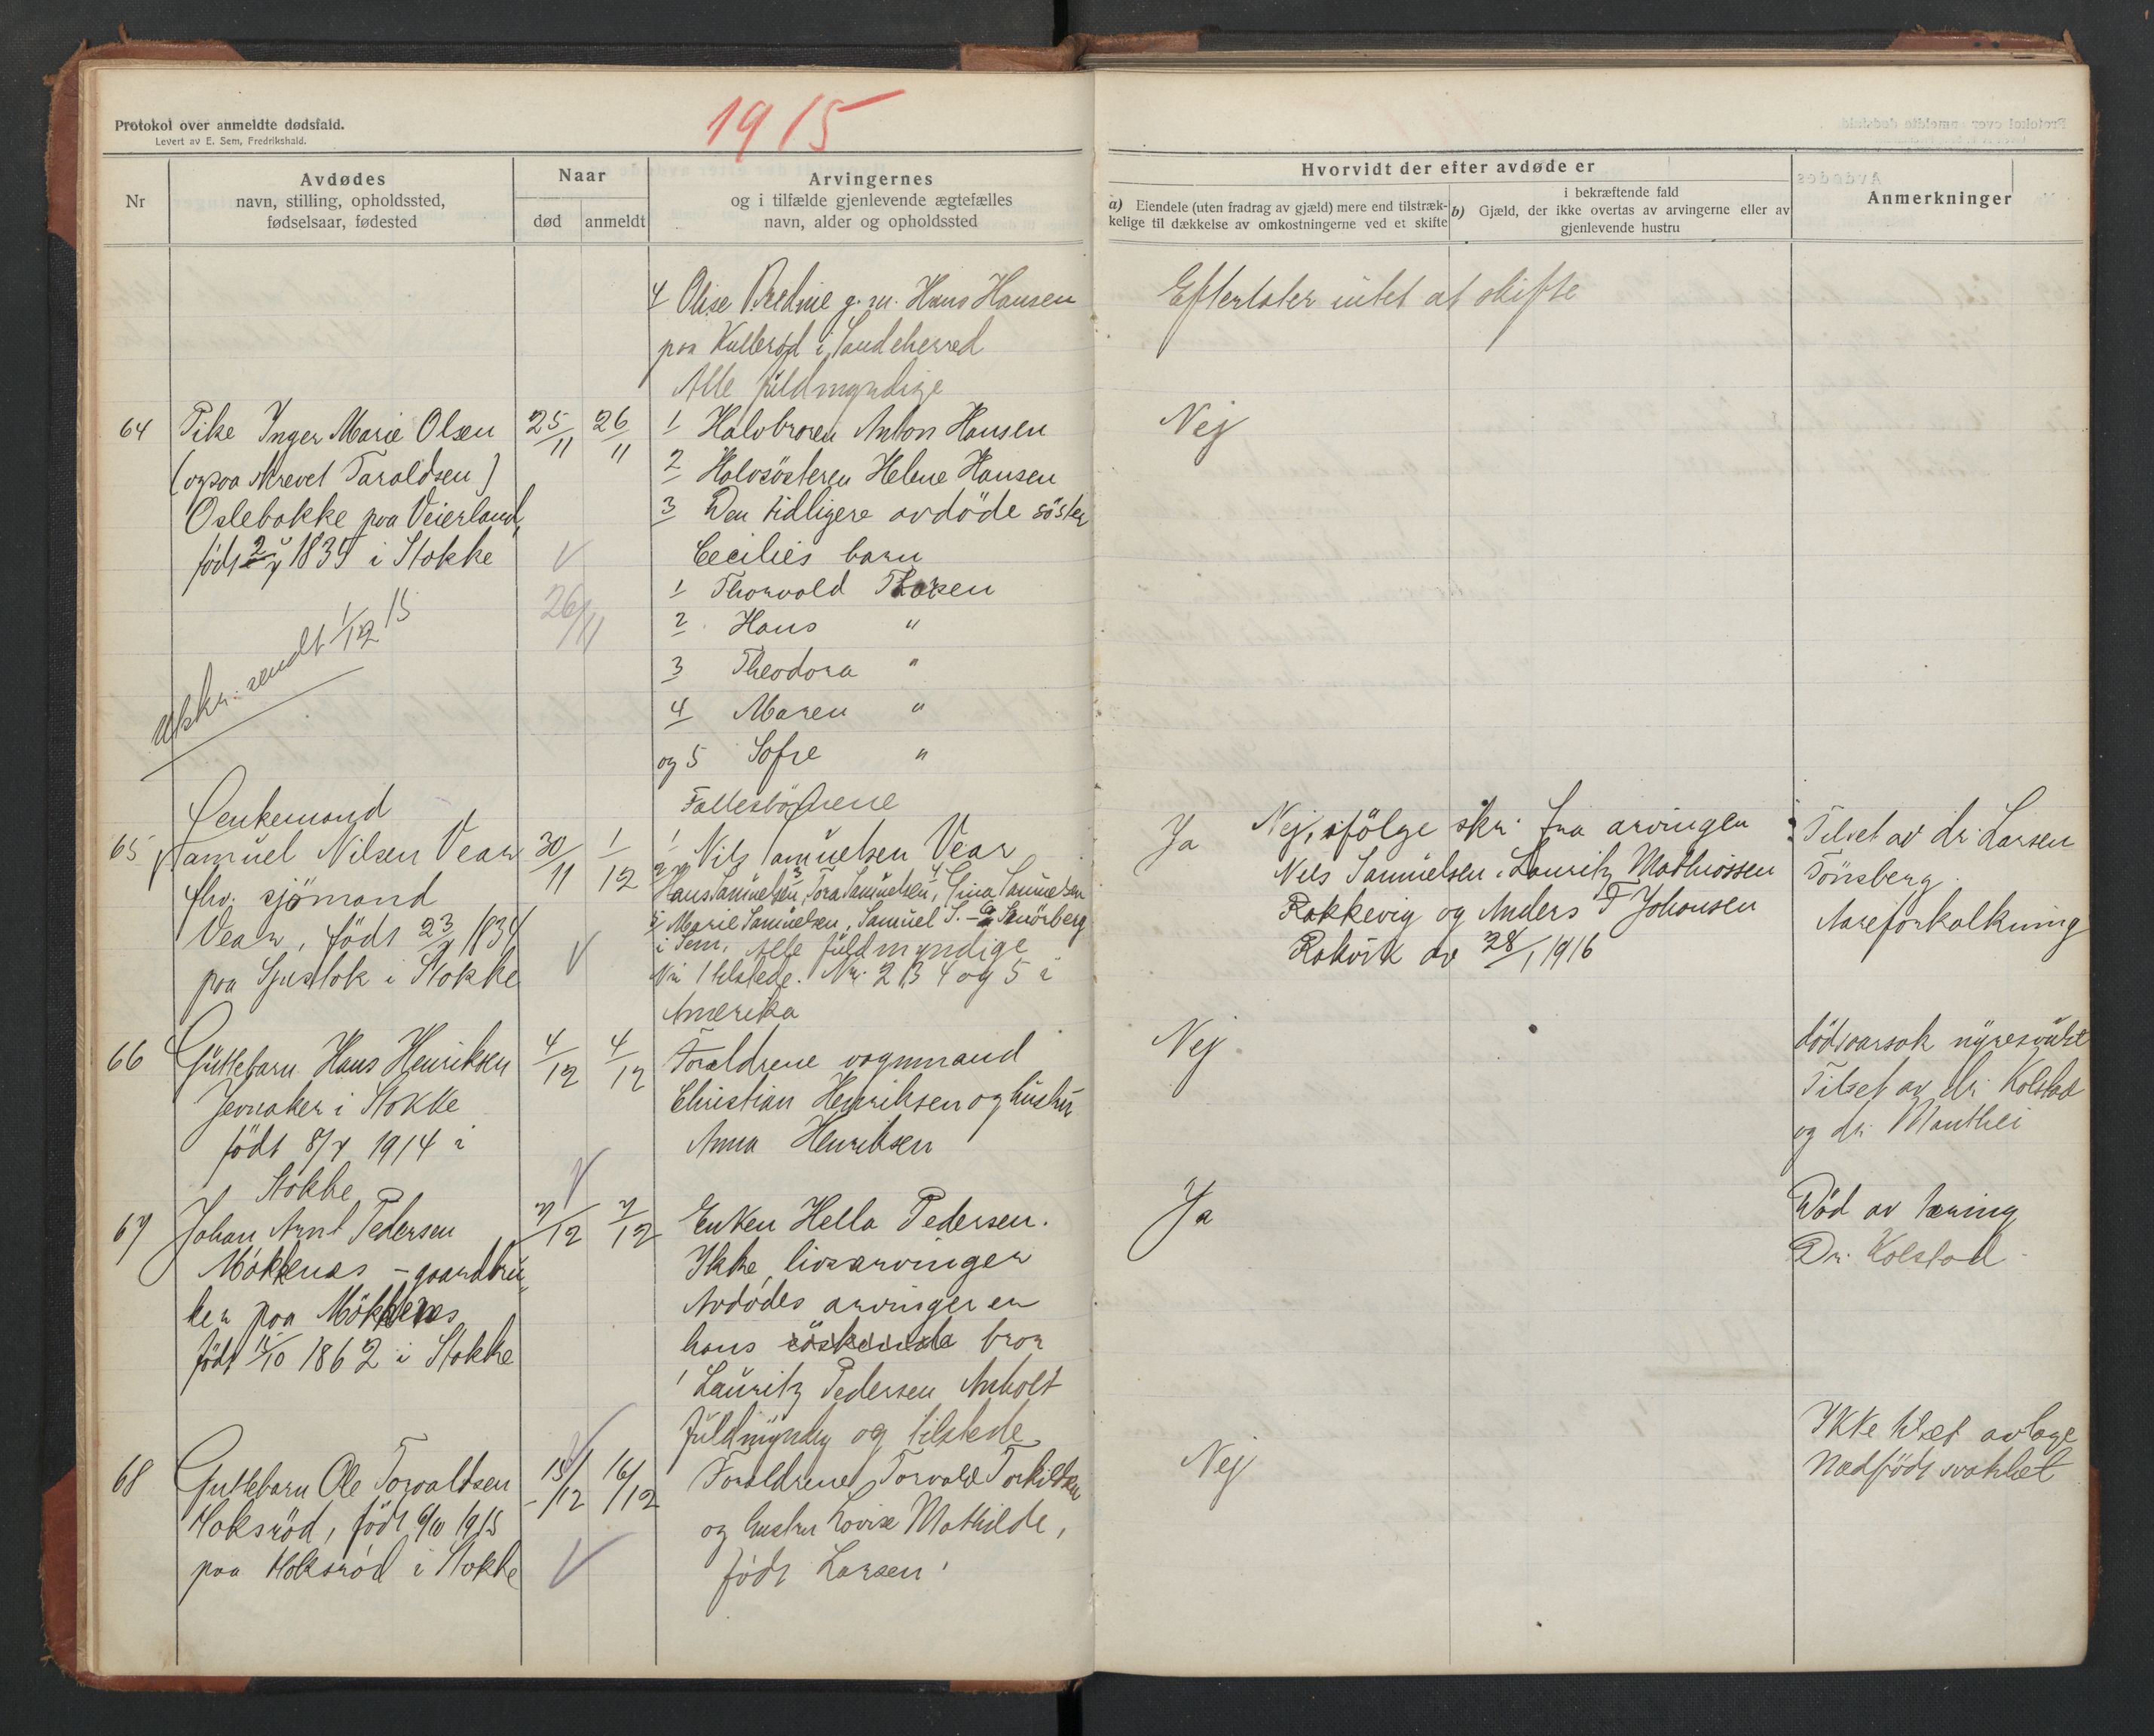 1915
Protokol over anmeldte dødsfald.
Levert av E. Sem, Fredrikshald.
Nr
Avdødes
navn, stilling, opholdssted,
fødselsaar, fødested
Naar
død
anmeldt
Arvingernes
og i tilfælde gjenlevende ægtefælles
navn, alder og opholdssted
Hvorvidt der efter avdøde er
a) Eiendele (uten fradrag av gjæld) mere end tilstræk-
kelige til dækkelse av omkostningerne ved et skifte
i bekræftende fald
b) Gjæld, der ikke overtas av arvingerne eller av
gjenlevende hustru
Anmerkninger
4 Olise g. m. Hans Hansen
paa Kullerød i Sandeherred
Alle fuldmyndige
Efterlater intet at skifte
64
Pike Inger Marie Olsen
(ogsaa skrevet Taraldsen)
Oslebakke paa Veierland,
født 1835 i Stokke
25/11
26/11
V
26/11
Utskr. sendt 1/12 15
1 Halvbroren Anton Hansen
2 Halvsösteren Helene Hansen
3 Den tidligere avdöde söster
Cecilies barn
1 Thorvold
2 Hans "
3 Theodora "
4 Maren "
og 5 Sofie "
Nej
65
Enkemand
Samuel Nilsen Vear
fhv. sjömand
Vear, födt 23/ 1834
paa i Stokke
30/11
1/12
V
1 Nils Samuelsen Vear
2 Hans Samuelsen, 3 Tora Samuelsen, 4 Lina Samuelsen
5 Marie Samuelsen, Samuel S. –
i Sem, Alle fuldmyndige
Nr 1 tilstede. Nr. 2 3 4 og 5 i
Amerika
Ja
Nej, ifölge skr. fra arvingen
Nils Samuelsen, Lauritz Mathiassen
Rakkevig og Anders T Johansen
Rakvik av 28/1 1916
Tilset av dr. Larsen
Tönsberg.
Aareforkalkning
66
Guttebarn Hans Henriksen
Jevnaker i Stokke
födt 8/7 1914 i
Stokke
4/12
4/12
V
Foreldrene vognmand
Christian Henriksen og hustru
Anna Henriksen
Nej
dödsaarsak
Tilset av dr. Kolstad
og dr. Manthei
67
Johan Arnt Pedersen
Møkkenæs – gaardbru-
ker paa Møkkenæs
født 1862 i Stokke
7/12
7/12
Enken Hella Pedersen.
Ikke livsarvinger
Avdødes arvinger er
hans söskende bror
1 Lauritz Pedersen Anholt
fuldmyndig og tilstede
Ja
Död av tæring
Dr. Kolstad
68
Guttebarn Ole Torvaldsen
Hoksröd, födt 6/10 1915
paa Hoksröd i Stokke
15/12
16/12
V
Foreldrene Torvald Torkildsen
og hustru Lovise Mathilde,
födt Larsen.
Nej
Ikke tilset av læge
Medfödt svakhet